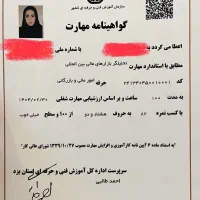 سازمان آموزش فنی و حرفه ای کشور
گواهینامه مهارت
اعطا می گردد به
با شماره ملی
مطابق با استاندارد مهارت
تحلیلگر بازارهای مالی بین المللی
کد
حرفه
امور مالی و بازرگانی
به مدت
۱۰۰
ساعت و بر اساس ارزشیابی مهارت شغلی
۱۴۰۴/۰۲/۳۰
با کسب نمره
۸۲
به حروف
هشتاد و دو
از ۱۰۰ و سطح
خیلی خوب
سرپرست اداره کل آموزش فنی و حرفه ای استان یزد
احمد طالبی